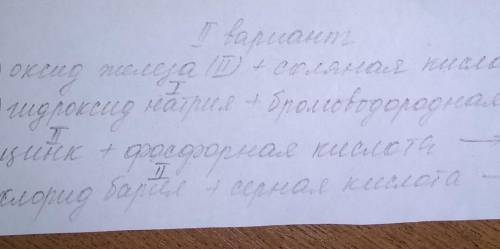 II вариант
оксид железа (II) + соляная кисло
I
гидроксид натрия + бромоводородная
II
цинк + фосфорная кислота →
II
хлорид бария + серная кислота →